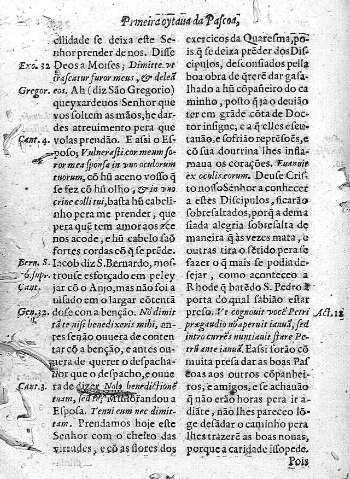 Primeira oytaua da Pascoa,
cilidade se deixa este Se-
nhor prender de nos. Disse
Exo. 32 Deos a Moises; Dimitte. vt
irascatur furor meus, & deleā
Gregor. eos. Ah (diz São Gregorio)
queyxardeuos Senhor que
vos soltem as mãos, he dar-
des atreuimento pera que
Cant. 4. volas prendão. E assi o Es-
poso; Vulnerasti cor meum so-
ror mea sponsa in vno oculorum
tuorum, cō hū aceno vosso q̄
se fez cō hū olho, & in vno
crine colli tui, basta hū cabeli-
nho pera me prender, que
pera que tem amor aos ace-
nos acode, & hū cabelo saō
fortes cordas cō q̄ se prēde.
Bern. S. Iacob diz S. Bernardo, mos-
ū supr. trouse esforçado em peley
Cant. jar cō o Anjo, mas não foi a
uisado em o largar cōtentā
Gen. 32. dose con a benção. Nō dimit
tā te nisi benedixeris mihi, an-
tes senão ouuera de conten-
tar cō a benção, e antes ou-
uera de querer o despacha-
dor que o despacho, e ouue
Cant. 3. ra de dizer Nolo benedictionē
tuam, sed te, Melhor andou a
Esposa. Tenui eum nec dimit-
tam. Prendamos hoje este
Senhor com o cheiro das
virtudes, e cō as flores dos
exercicos da Quaresma, po-
is q̄ se deixa prēder dos Dis-
cipulos, desconfiados, pella
boa obra de q̄rerē dar gasa-
lhado a hū cōpaneiro do ca
minho, posto q̄ ja o deuião
ter em grāde cōta de Doc-
tor insigne, e a q̄ elles escu-
tauão, e sofrião reprēsões, e
cō sua doutrina lhes infla-
maua os corações. Euanuit
ex oculis eorum. Deuse Cris-
to nosso Senhor a conhecer
a estes Discipulos, ficarão
sobresaltados, porq̄ a dema
siada alegria sobresalta de
maneira q̄ às vezes mata, e
outras tira o sētido pera se
fazer o q̄ mais se podia de-
sejar, como aconteceo a
Rhode q̄ batēdo S. Pedro à
porta do qual sabião estar
preso. Vt cognouit vocē Petri Act. 12
præ gaudio nō aperuit ianuā, sed
intro currēs nuntiauit stare Petrū
ante ianuā. E assi forão cō
muita presa dar as boas Pas
coas aos outros cōpanhei-
ros, e amigos, e se achauão
q̄ não erão horas pera ir a-
diāte, não lhes pareceo lō-
ge desādar o caminho pera
lhes trazerē as boas nouas,
porque a caridade isso pede.
Pois